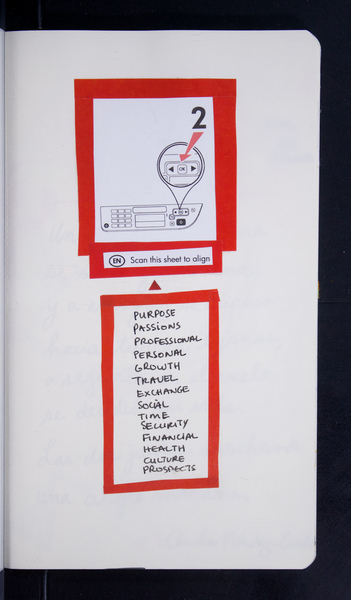 2
OK
EN Scan this sheet to align
PURPOSE
PASSIONS
PROFESSIONAL
PERSONAL
GROWTH
TRAVEL
EXCHANGE
SOCIAL
TIME
SECURITY
FINANCIAL
HEALTH
CULTURE
PROSPECTS